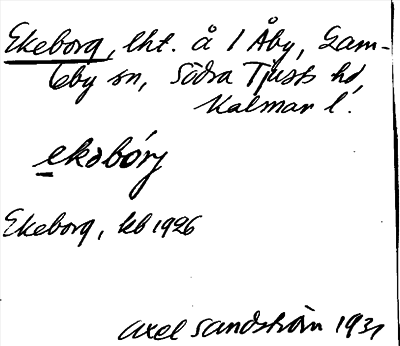 Ekeborg, lht. å 1 Åby, Gam-
leby sn, Södra Tjusts hd,
Kalmar l.
ekəbórj
Ekeborg, kb 1926
Axel Sandström 1931